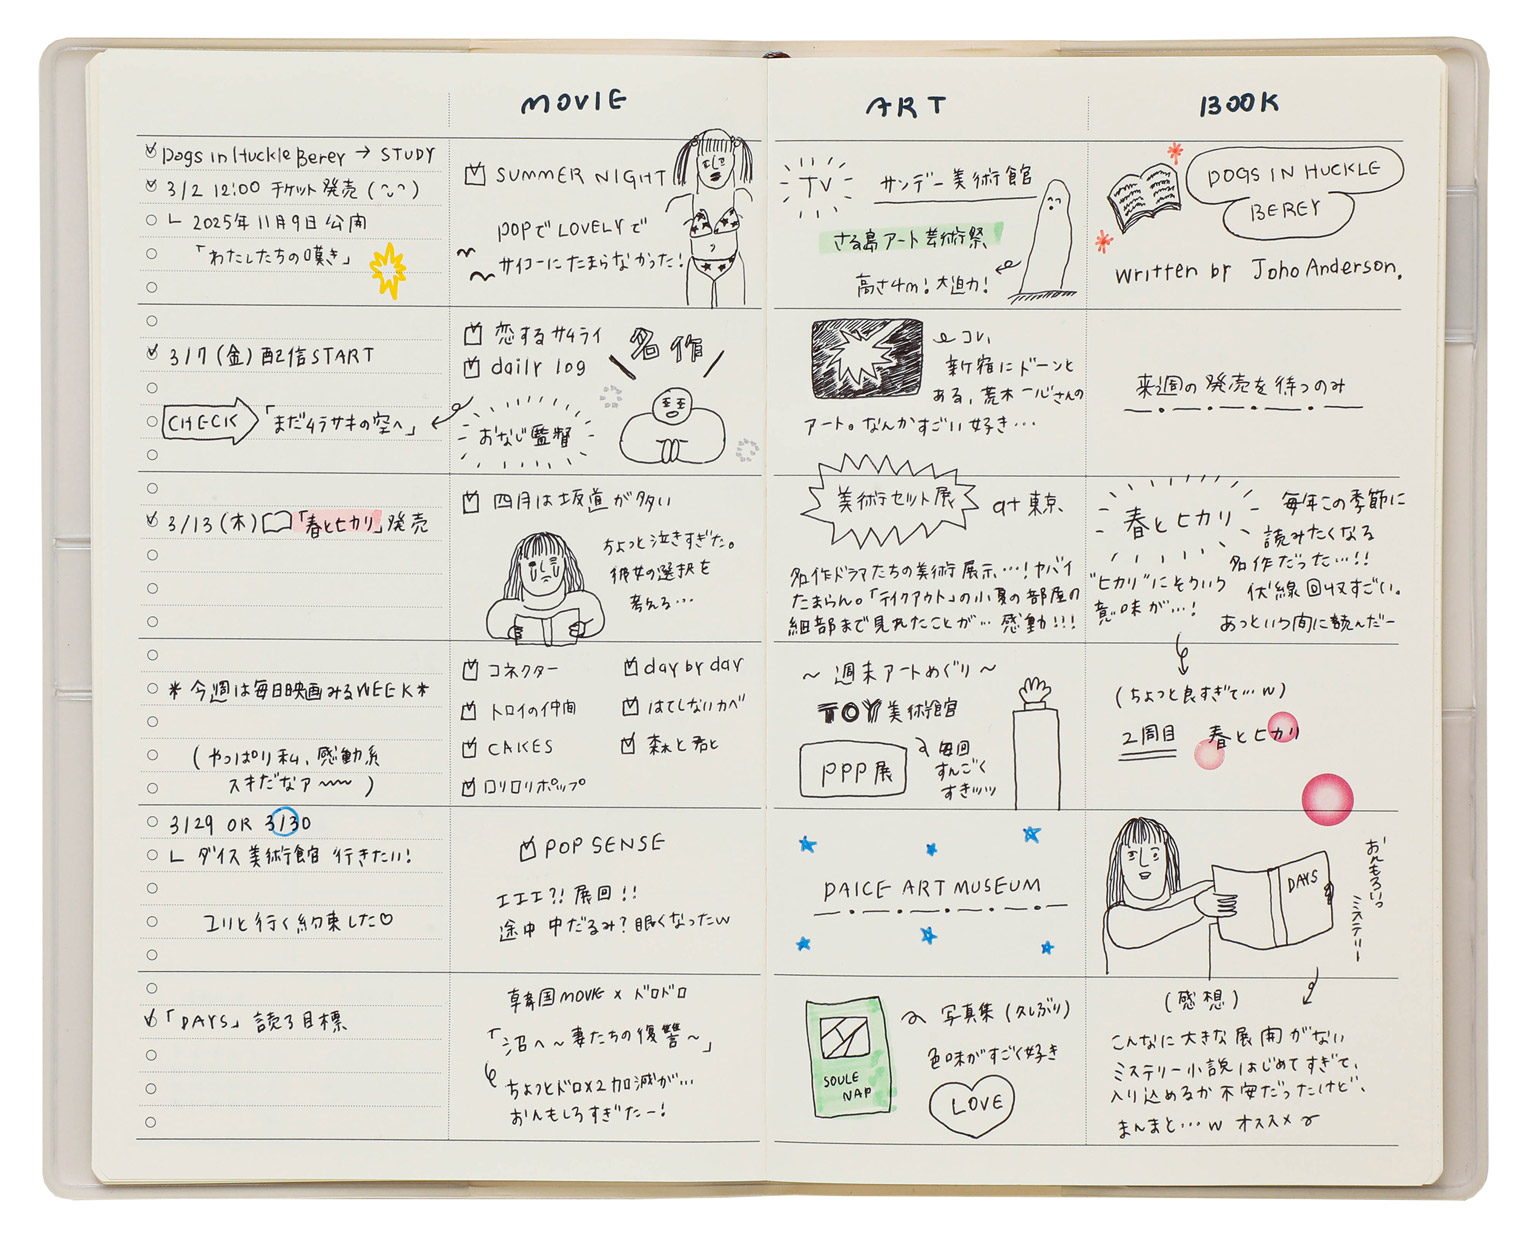 MOVIE
ART
BOOK
Dogs in Huckle Berey → STUDY
3/2 12:00 チケット発売 (
└ 2025年11月9日公開
「わたしたちの嘆き」
3/7 (金) 配信START
CHECK 「まだムラサキの空へ」
3/13 (木) 「春とヒカリ」発売
* 今週は毎日映画みるWEEK *
(やっぱり私、感動系
スキだなァ〜〜 )
3/29 OR 3/30
└ ダイス美術館 行きたい!
ユリと行く約束した♡
「DAYS」読る目標
SUMMER NIGHT
POPでLOVELYで
サイコーにたまらなかった!
恋するサムライ
daily log
名作
おなじ監督
四月は坂道が多い
ちょっと泣きすぎた。
彼女の選択を
考える…
コネクター
day by day
トロイの仲間
はてしないカベ
CAKES
森と君と
ロリロリポップ
POP SENSE
エエエ?! 展回!!
途中 中だるみ? 眠くなったw
韓国MOVIE × ドロドロ
「沼へ〜妻たちの復讐〜」
ちょっとドロ×2加減が…
おんもしろすぎたー!
TV
サンデー美術館
さる島アート芸術祭
高さ4m! 大迫力!
コレ、
新宿にドーンと
ある、荒木一心さんの
アート。なんかすごい好き…
美術セット展
at 東京、
名作ドラマたちの美術展示…! ヤバイ
たまらん。「テイクアウト」の小夏の部屋の
細部まで見れたことが… 感動!!!
〜 週末アートめぐり 〜
TOY美術館
PPP展
毎回
すんごく
すきッッ
DAICE ART MUSEUM
SOULE
NAP
写真集 (久しぶり)
色味がすごく好き
LOVE
DOGS IN HUCKLE
BEREY
written by Joho Anderson.
来週の発売を待つのみ
春とヒカリ
毎年この季節に
読みたくなる
名作だった…!!
伏線回収すごい。
あっという間に読んだー
"ヒカリ"にそういう
意味が…!
(ちょっと良すぎて…w)
2周目 春とヒカリ
DAYS
おんもろいっ
ミステリー
(感想)
こんなに大きな展開がない
ミステリー小説はじめてすぎて、
入り込めるか不安だったけど、
まんまと…w オススメ